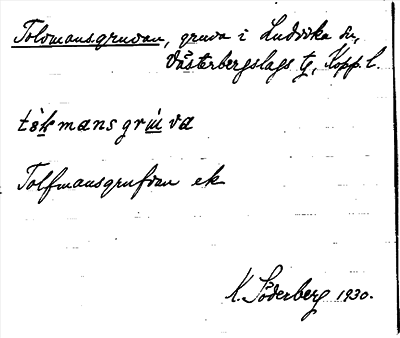 Tolvmansgruvan, gruva i Ludvika sn,
Västerbergslags tg, Kopp. l.
Tolfmansgrufvan ek
K. Söderberg 1930.